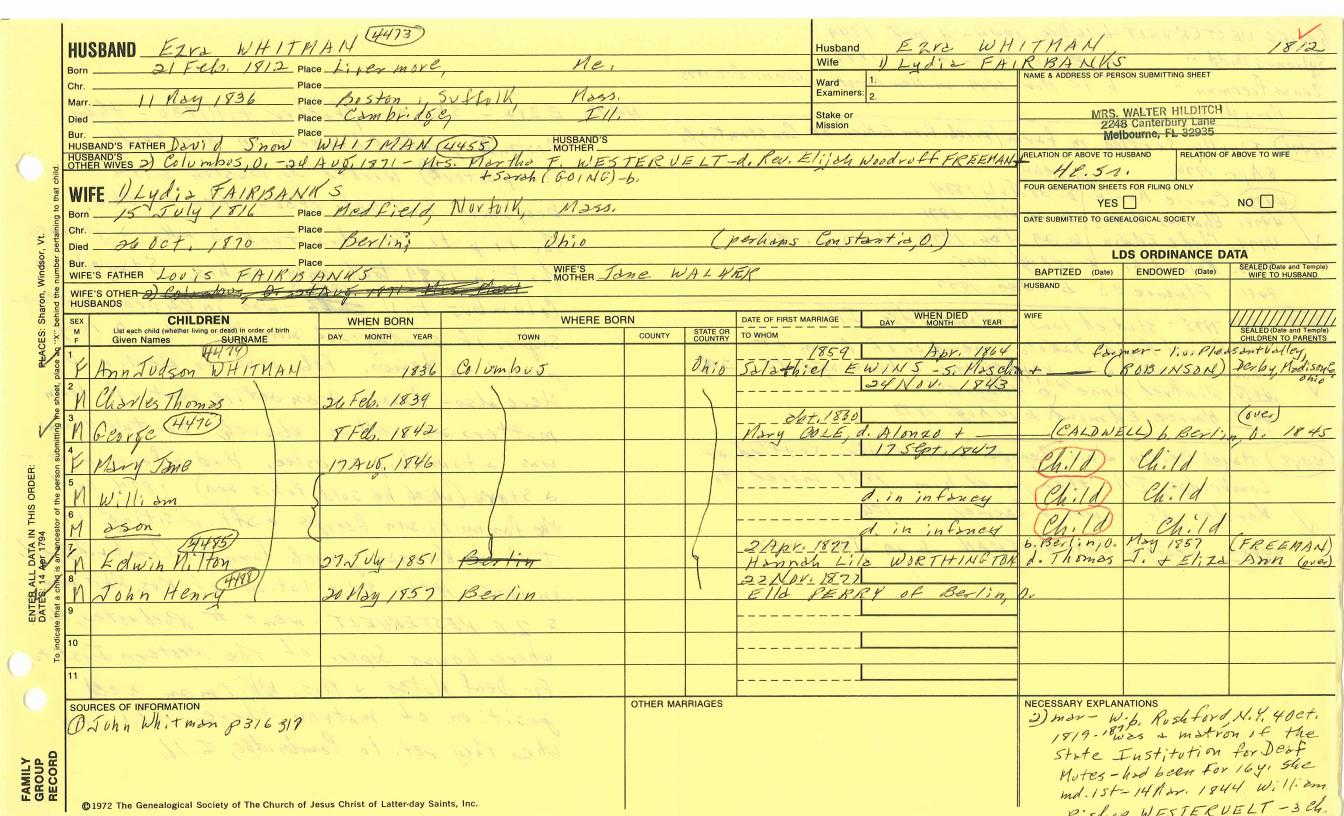 HUSBAND Ezra WHITMAN 4473
Born 21 Feb. 1812 Place Livermore, Me.
Chr. Place
Marr. 11 May 1836 Place Boston, Suffolk, Mass.
Died Place Cambridge, Ill.
Bur. Place
HUSBAND'S FATHER David Snow WHITMAN 4455 HUSBAND'S MOTHER
HUSBAND'S OTHER WIVES 2) Columbus, O. - 24 Aug. 1871 - Mrs. Martha F. WESTERVELT - d. Rev. Elijah Woodruff FREEMAN
+ Sarah (GOING) - b.
WIFE 1) Lydia FAIRBANKS
Born 15 July 1816 Place Medfield, Norfolk, Mass.
Chr. Place
Died 26 Oct. 1870 Place Berlin; Ohio (perhaps Constantia, O.)
Bur. Place
WIFE'S FATHER Louis FAIRBANKS WIFE'S MOTHER Jane WALKER
WIFE'S OTHER HUSBANDS 2) Columbus, O. 24 Aug. 1871 - Mrs. Mart
Husband Ezra WHITMAN 1812
Wife 1) Lydia FAIRBANKS
Ward Examiners: 1.
2.
Stake or Mission
NAME & ADDRESS OF PERSON SUBMITTING SHEET
MRS. WALTER HILDITCH
2248 Canterbury Lane
Melbourne, FL 32935
RELATION OF ABOVE TO HUSBAND RELATION OF ABOVE TO WIFE
FOUR GENERATION SHEETS FOR FILING ONLY
YES NO
DATE SUBMITTED TO GENEALOGICAL SOCIETY
LDS ORDINANCE DATA
BAPTIZED (Date) ENDOWED (Date) SEALED (Date and Temple) WIFE TO HUSBAND
HUSBAND
WIFE
SEALED (Date and Temple) CHILDREN TO PARENTS
SEX M F CHILDREN WHEN BORN WHERE BORN DATE OF FIRST MARRIAGE WHEN DIED
List each child (whether living or dead) in order of birth
Given Names SURNAME DAY MONTH YEAR TOWN COUNTY STATE OR COUNTRY TO WHOM DAY MONTH YEAR
4474 1859 Apr. 1864 farmer - liv. Pleasant Valley,
1 F Ann Judson WHITMAN 1836 Columbus Ohio Salathiel EWINS - s. + (ROBINSON) Derby, Madison Co. Ohio
2 M Charles Thomas 26 Feb. 1839 24 Nov. 1843
3 M George 4476 8 Feb. 1842 Oct. 1830 Mary COLE, d. Alonzo + (CALDWELL) b. Berlin, O. 1845 (over)
4 F Mary Jane 17 Aug. 1846 17 Sept. 1847 Child Child
5 M William d. in infancy Child Child
6 M a son d. in infancy Child Child
7 M Edwin Milton 4485 27 July 1851 Berlin 2 Apr. 1877 Hannah Lila WORTHINGTON b. Berlin, O. May 1857 (FREEMAN)
d. Thomas J. + Eliza Ann (over)
8 M John Henry 4488 20 May 1857 Berlin 22 Nov. 1877 Ella PERRY of Berlin, O.
9
10
11
SOURCES OF INFORMATION
① John Whitman p 316 317
OTHER MARRIAGES
NECESSARY EXPLANATIONS
2) mar - W. b. Rushford, N.Y. 4 Oct.
1819 - was a matron of the
State Institution for Deaf
Mutes - had been for 16 y. She
md. 1st - 14 Mar. 1844 William
WESTERVELT - 3 ch.
©1972 The Genealogical Society of The Church of Jesus Christ of Latter-day Saints, Inc.
FAMILY GROUP RECORD
ENTER ALL DATA IN THIS ORDER:
DATES: 14 Apr 1794 PLACES: Sharon, Windsor, Vt.
To indicate that a child is an ancestor of the person submitting the sheet, place an "X" behind the number pertaining to that child.